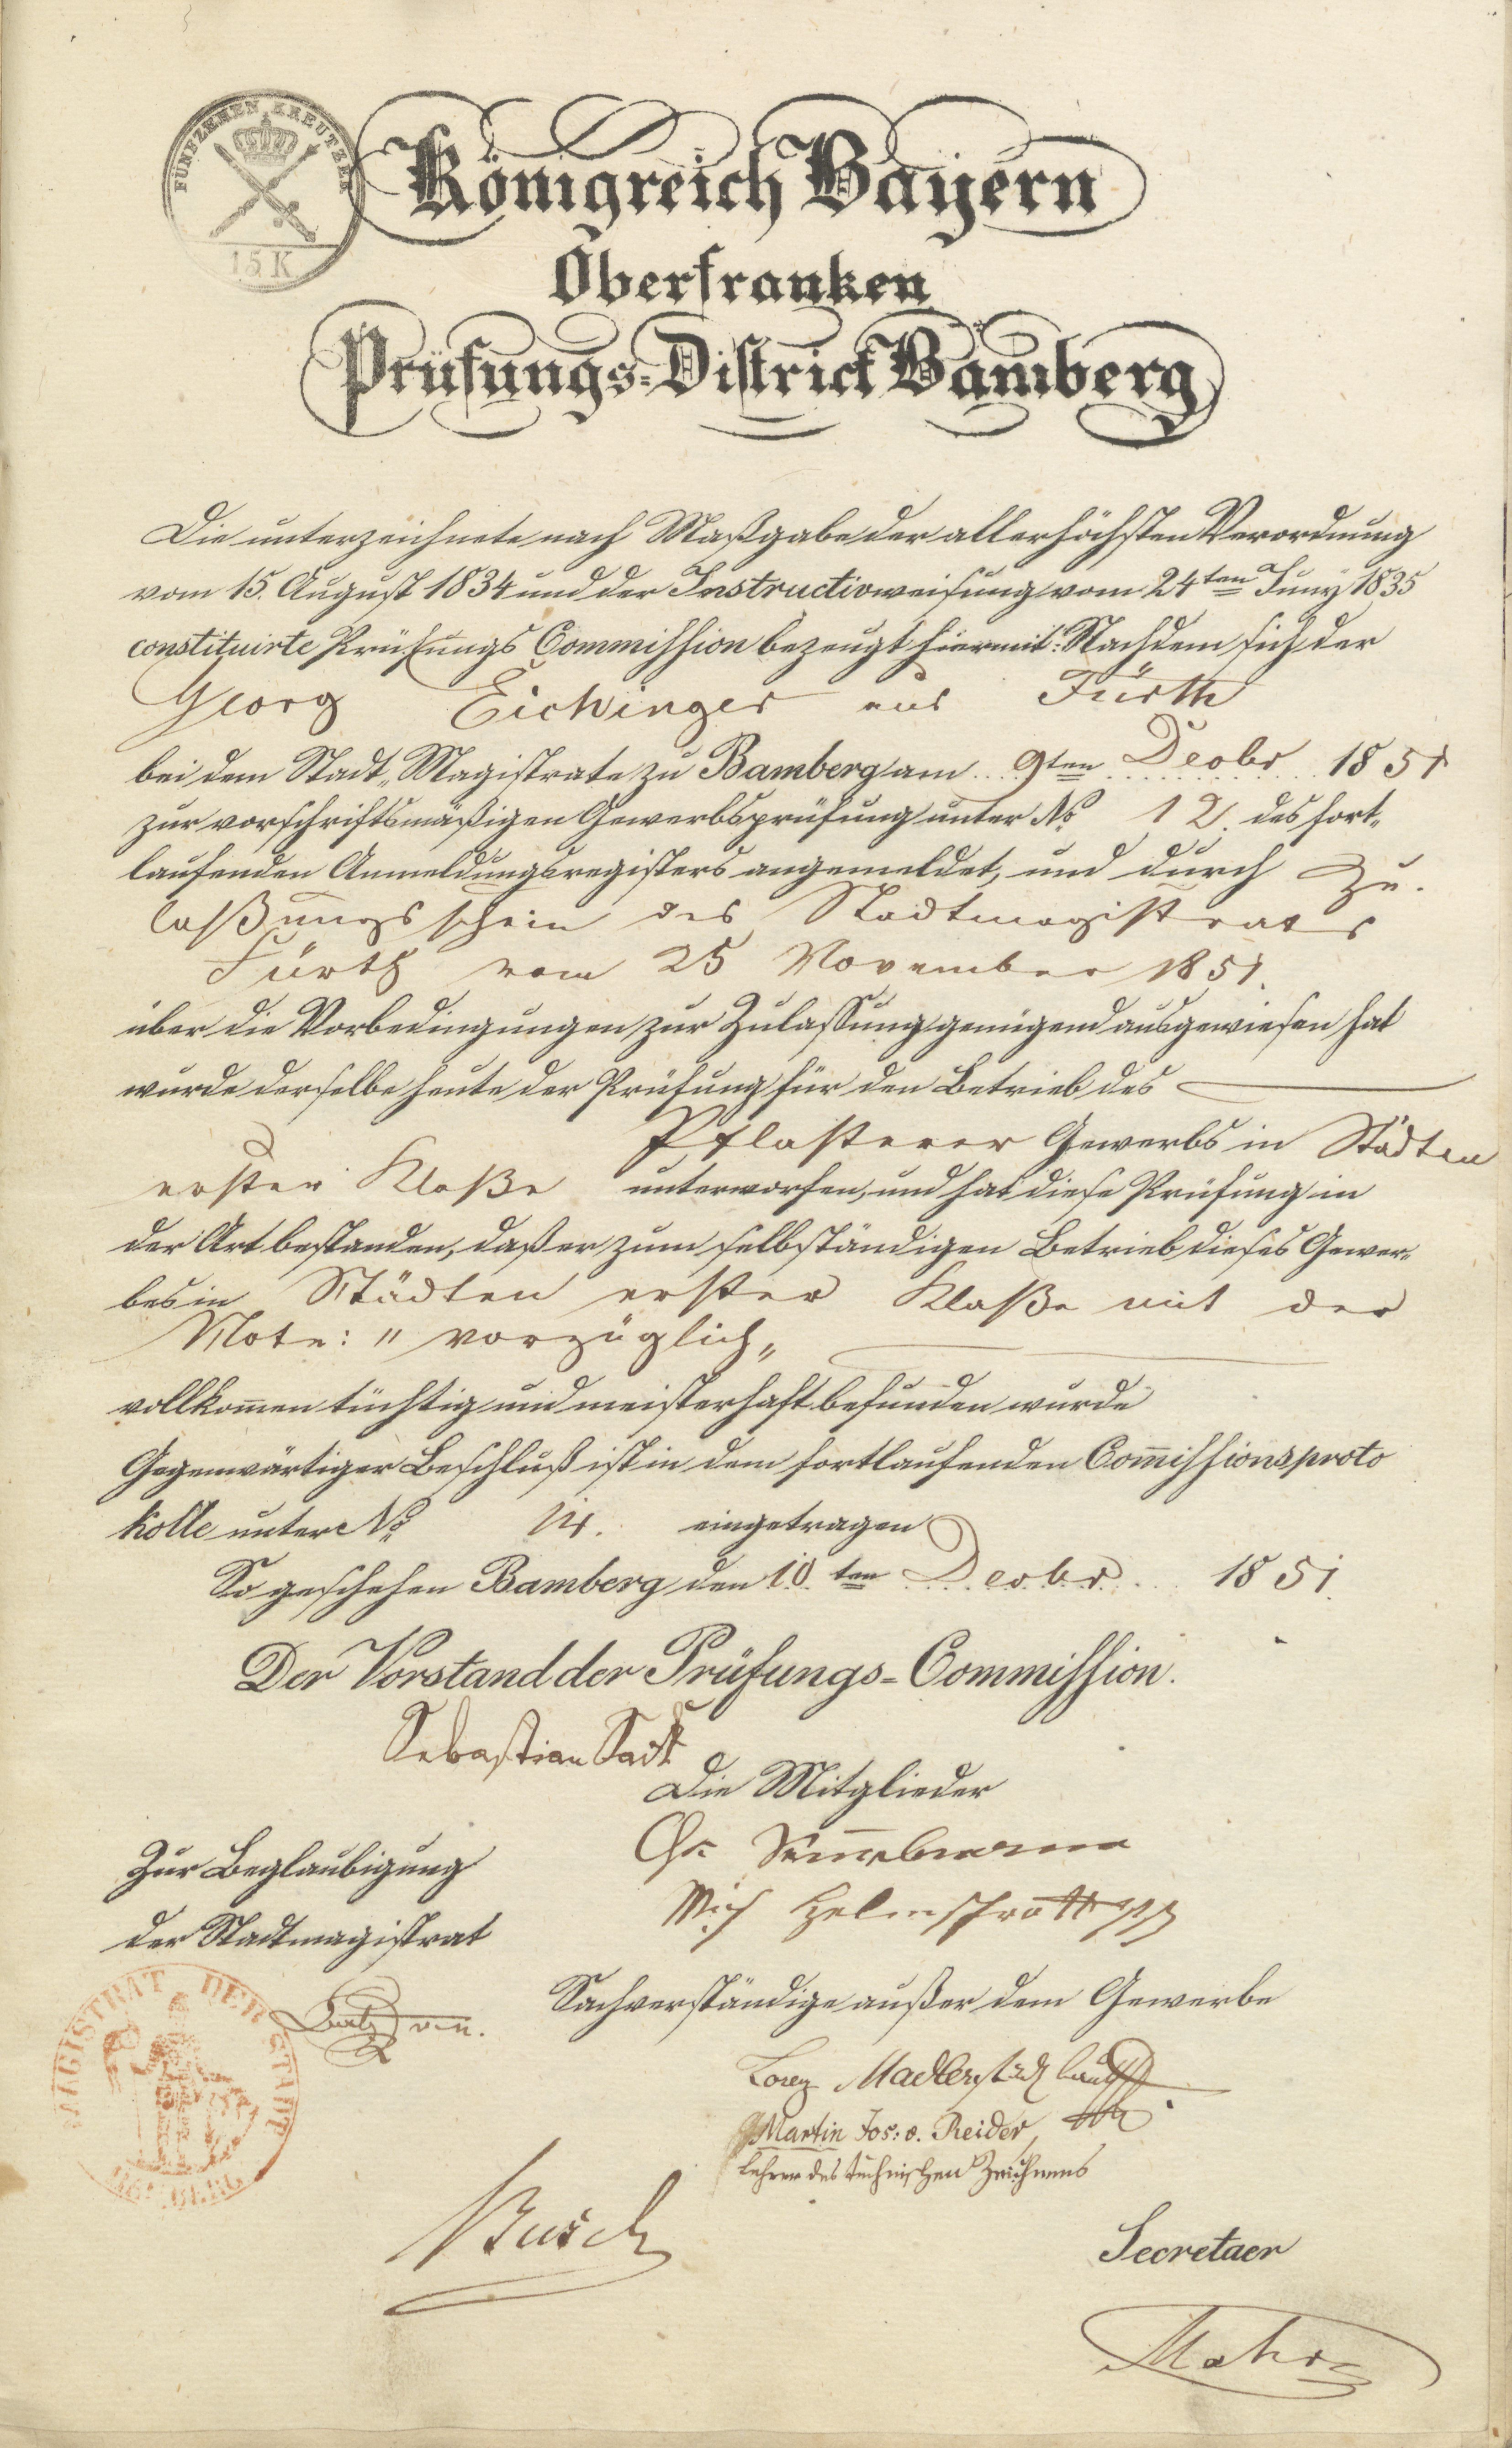 FUNFZEHEN KREUTZER
15 K
Königreich Bayern
Oberfranken
Prüfungs-District Bamberg
Die unterzeichnete nach Maßgabe der allerhöchsten Verordnung
vom 15. August 1834 und der Instructivweisung vom 24ten Juny 1835
constituirte Prüfungs Commission bezeugt hiermit: Nachdem sich der
Georg Eichinger aus Fürth
bei dem Stadt-Magistrate zu Bamberg am 9ten Decbr 1851
zur vorschriftsmäßigen Gewerbsprüfung unter No 12. des fort-
laufenden Anmeldungsregisters angemeldet, und durch Zu-
laßungsschein des Stadtmagistrats
Fürth vom 25 November 1851.
über die Vorbedingungen zur Zulassung genügend ausgewiesen hat
wurde derselbe heute der Prüfung für den Betrieb des
Pflasterer Gewerbs in Städten
erster Klaße unterworfen, und hat diese Prüfung in
der Art bestanden, daß er zum selbständigen Betrieb dieses Gewer-
bes in Städten erster Klaße mit der
Note: "vorzüglich"
vollkom̅en tüchtig und meisterhaft befunden wurde
Gegenwärtiger Beschluß ist in dem fortlaufenden Com̅issionsproto
kolle unter No 14. eingetragen
So geschehen Bamberg den 10ten Decbr 1851.
Der Vorstand der Prüfungs-Commission.
Sebastian
Die Mitglieder
Zur Beglaubigung
der Stadtmagistrat
Mich
MAGISTRAT DER STADT
BAMBERG
Sachverständige außer dem Gewerbe
Lorenz Madler
Martin Jos: v. Reider,
Lehrer des technischen Zeichnens
Busch
Secretaer
Mahr